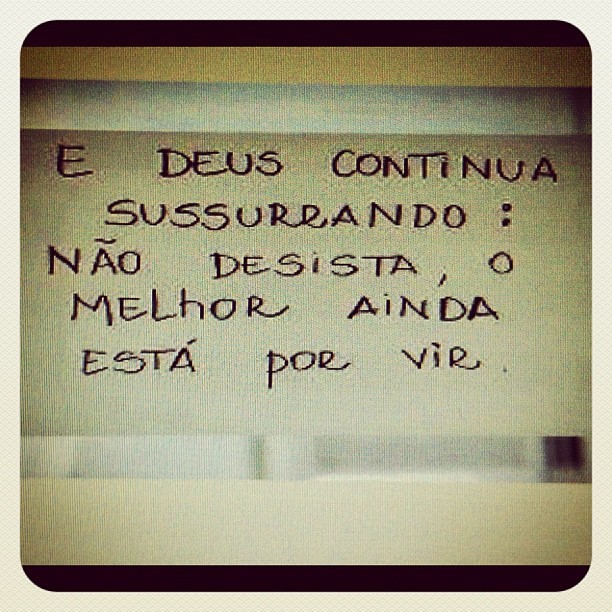 E DEUS CONTiNUA
SUSSURRANDO :
NÃO DESiSTA, O
MELhOR AiNDA
ESTÁ pOR ViR.